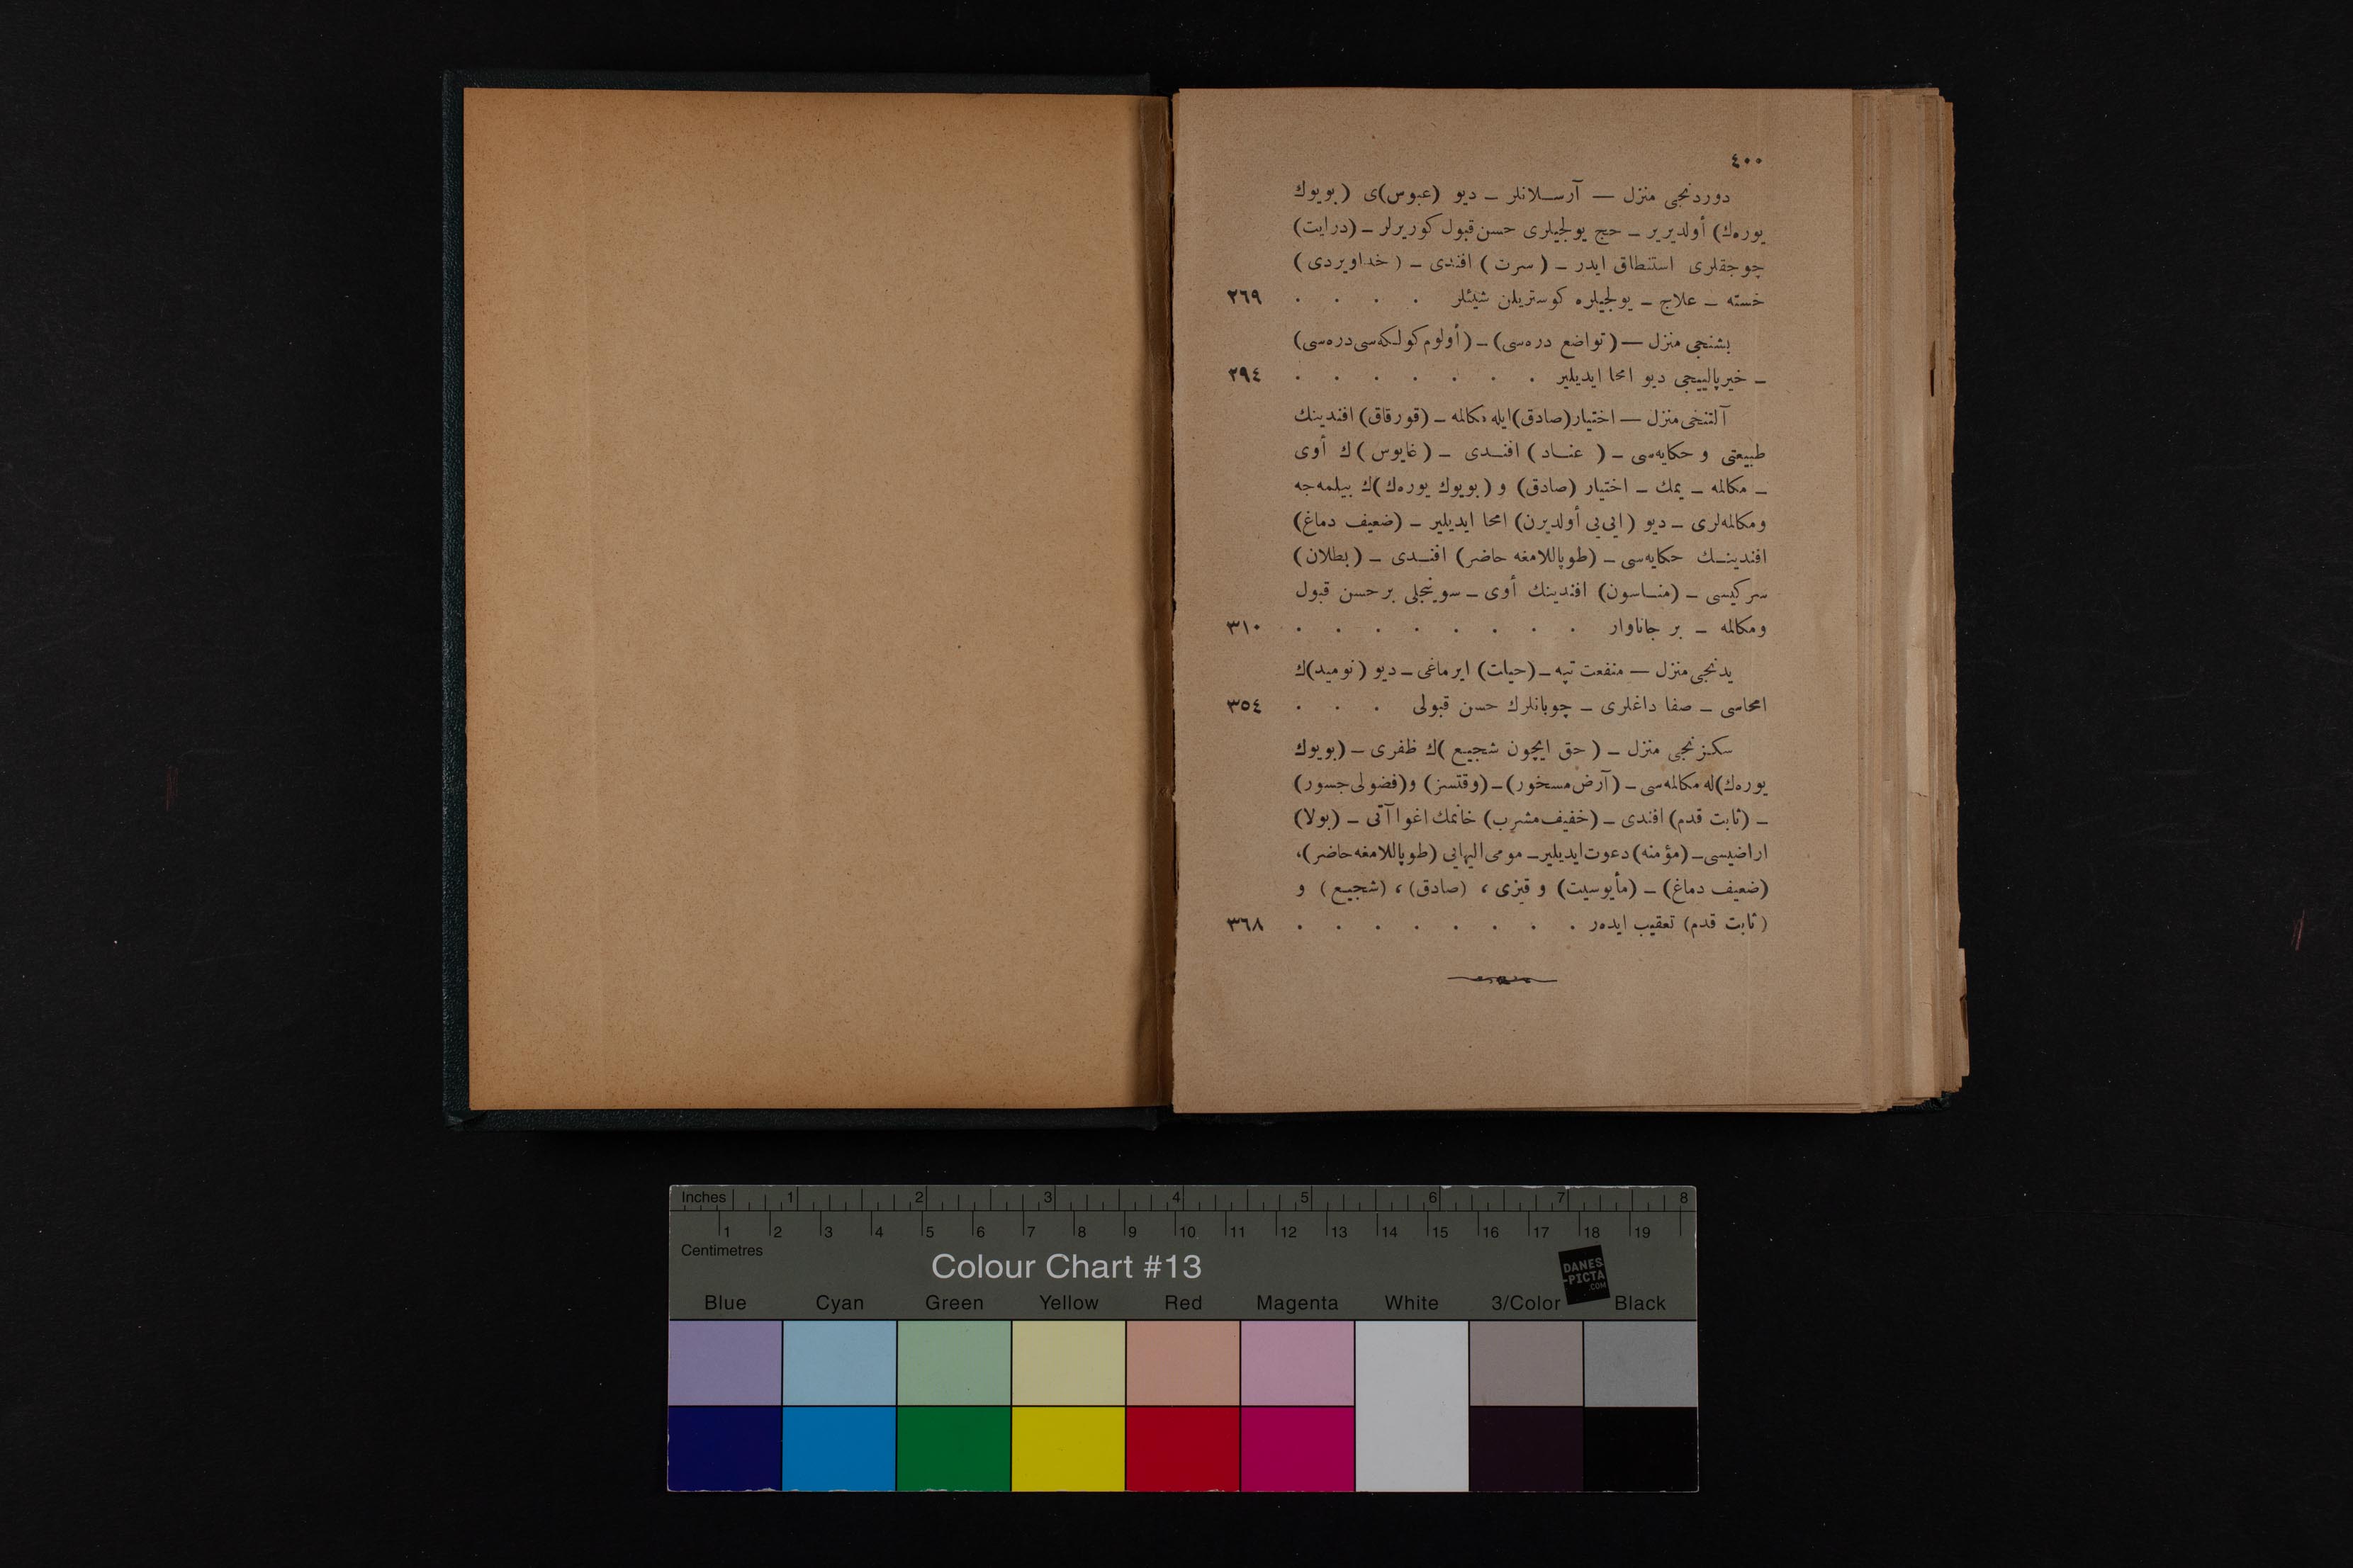 ٤٠٠
دوردنجی منزل — آرسلانلر – دیو (عبوس)ی (بویوك
یوره‌ك) أولدیریر – حج یولجیلری حسن قبول كوریرلر – (درایت)
چوجقلری استنطاق ایدر – (سرت) افندی – (خداویردی)
خسته – علاج – یولجیلره كوستریلن شیئلر . . . . ٢٦٩
بشنجی منزل — (تواضع دره‌سی) – (أولوم كولكه‌سی دره‌سی)
– خیرپالییجی دیو امحا ایدیلیر . . . . . . . ٢٩٤
آلتنجی منزل — اختیار (صادق) ایله مكالمه – (قورقاق) افندینك
طبیعتی و حكایه‌سی – (عناد) افندی – (غایوس)ك أوی
– مكالمه – یمك – اختیار (صادق) و (بویوك یوره‌ك)ك بیلمه‌جه
ومكالمه‌لری – دیو (ایی‌یی أولدیرن) امحا ایدیلیر – (ضعیف دماغ)
افندینك حكایه‌سی – (طوپاللامغه حاضر) افندی – (بطلان)
سركیسی – (مناسون) افندینك أوی – سوینجلی بر حسن قبول
ومكالمه – بر جاناوار . . . . . . . . ٣١٠
یدنجی منزل — منفعت تپه – (حیات) ایرماغی – دیو (نومید)ك
امحاسی – صفا داغلری – چوبانلرك حسن قبولی . . . ٣٥٤
سكزنجی منزل – (حق ایچون شجیع)ك ظفری – (بویوك
یوره‌ك)له مكالمه‌سی – (آرض مسخور) – (وقتسز) و (فضولی جسور)
– (ثابت قدم) افندی – (خفیف مشرب) خانمك اغواآتی – (بولا)
اراضیسی – (مؤمنه) دعوت ایدیلیر – مومی الیهایی (طوپاللامغه حاضر)،
(ضعیف دماغ) – (مأیوسیت) و قیزی ، (صادق) ، (شجیع) و
(ثابت قدم) تعقیب ایده‌ر . . . . . . . . ٣٦٨
Inches 1 2 3 4 5 6 7 8
1 2 3 4 5 6 7 8 9 10 11 12 13 14 15 16 17 18 19
Centimetres
Colour Chart #13
DANES
-PICTA
.COM
Blue Cyan Green Yellow Red Magenta White 3/Color Black